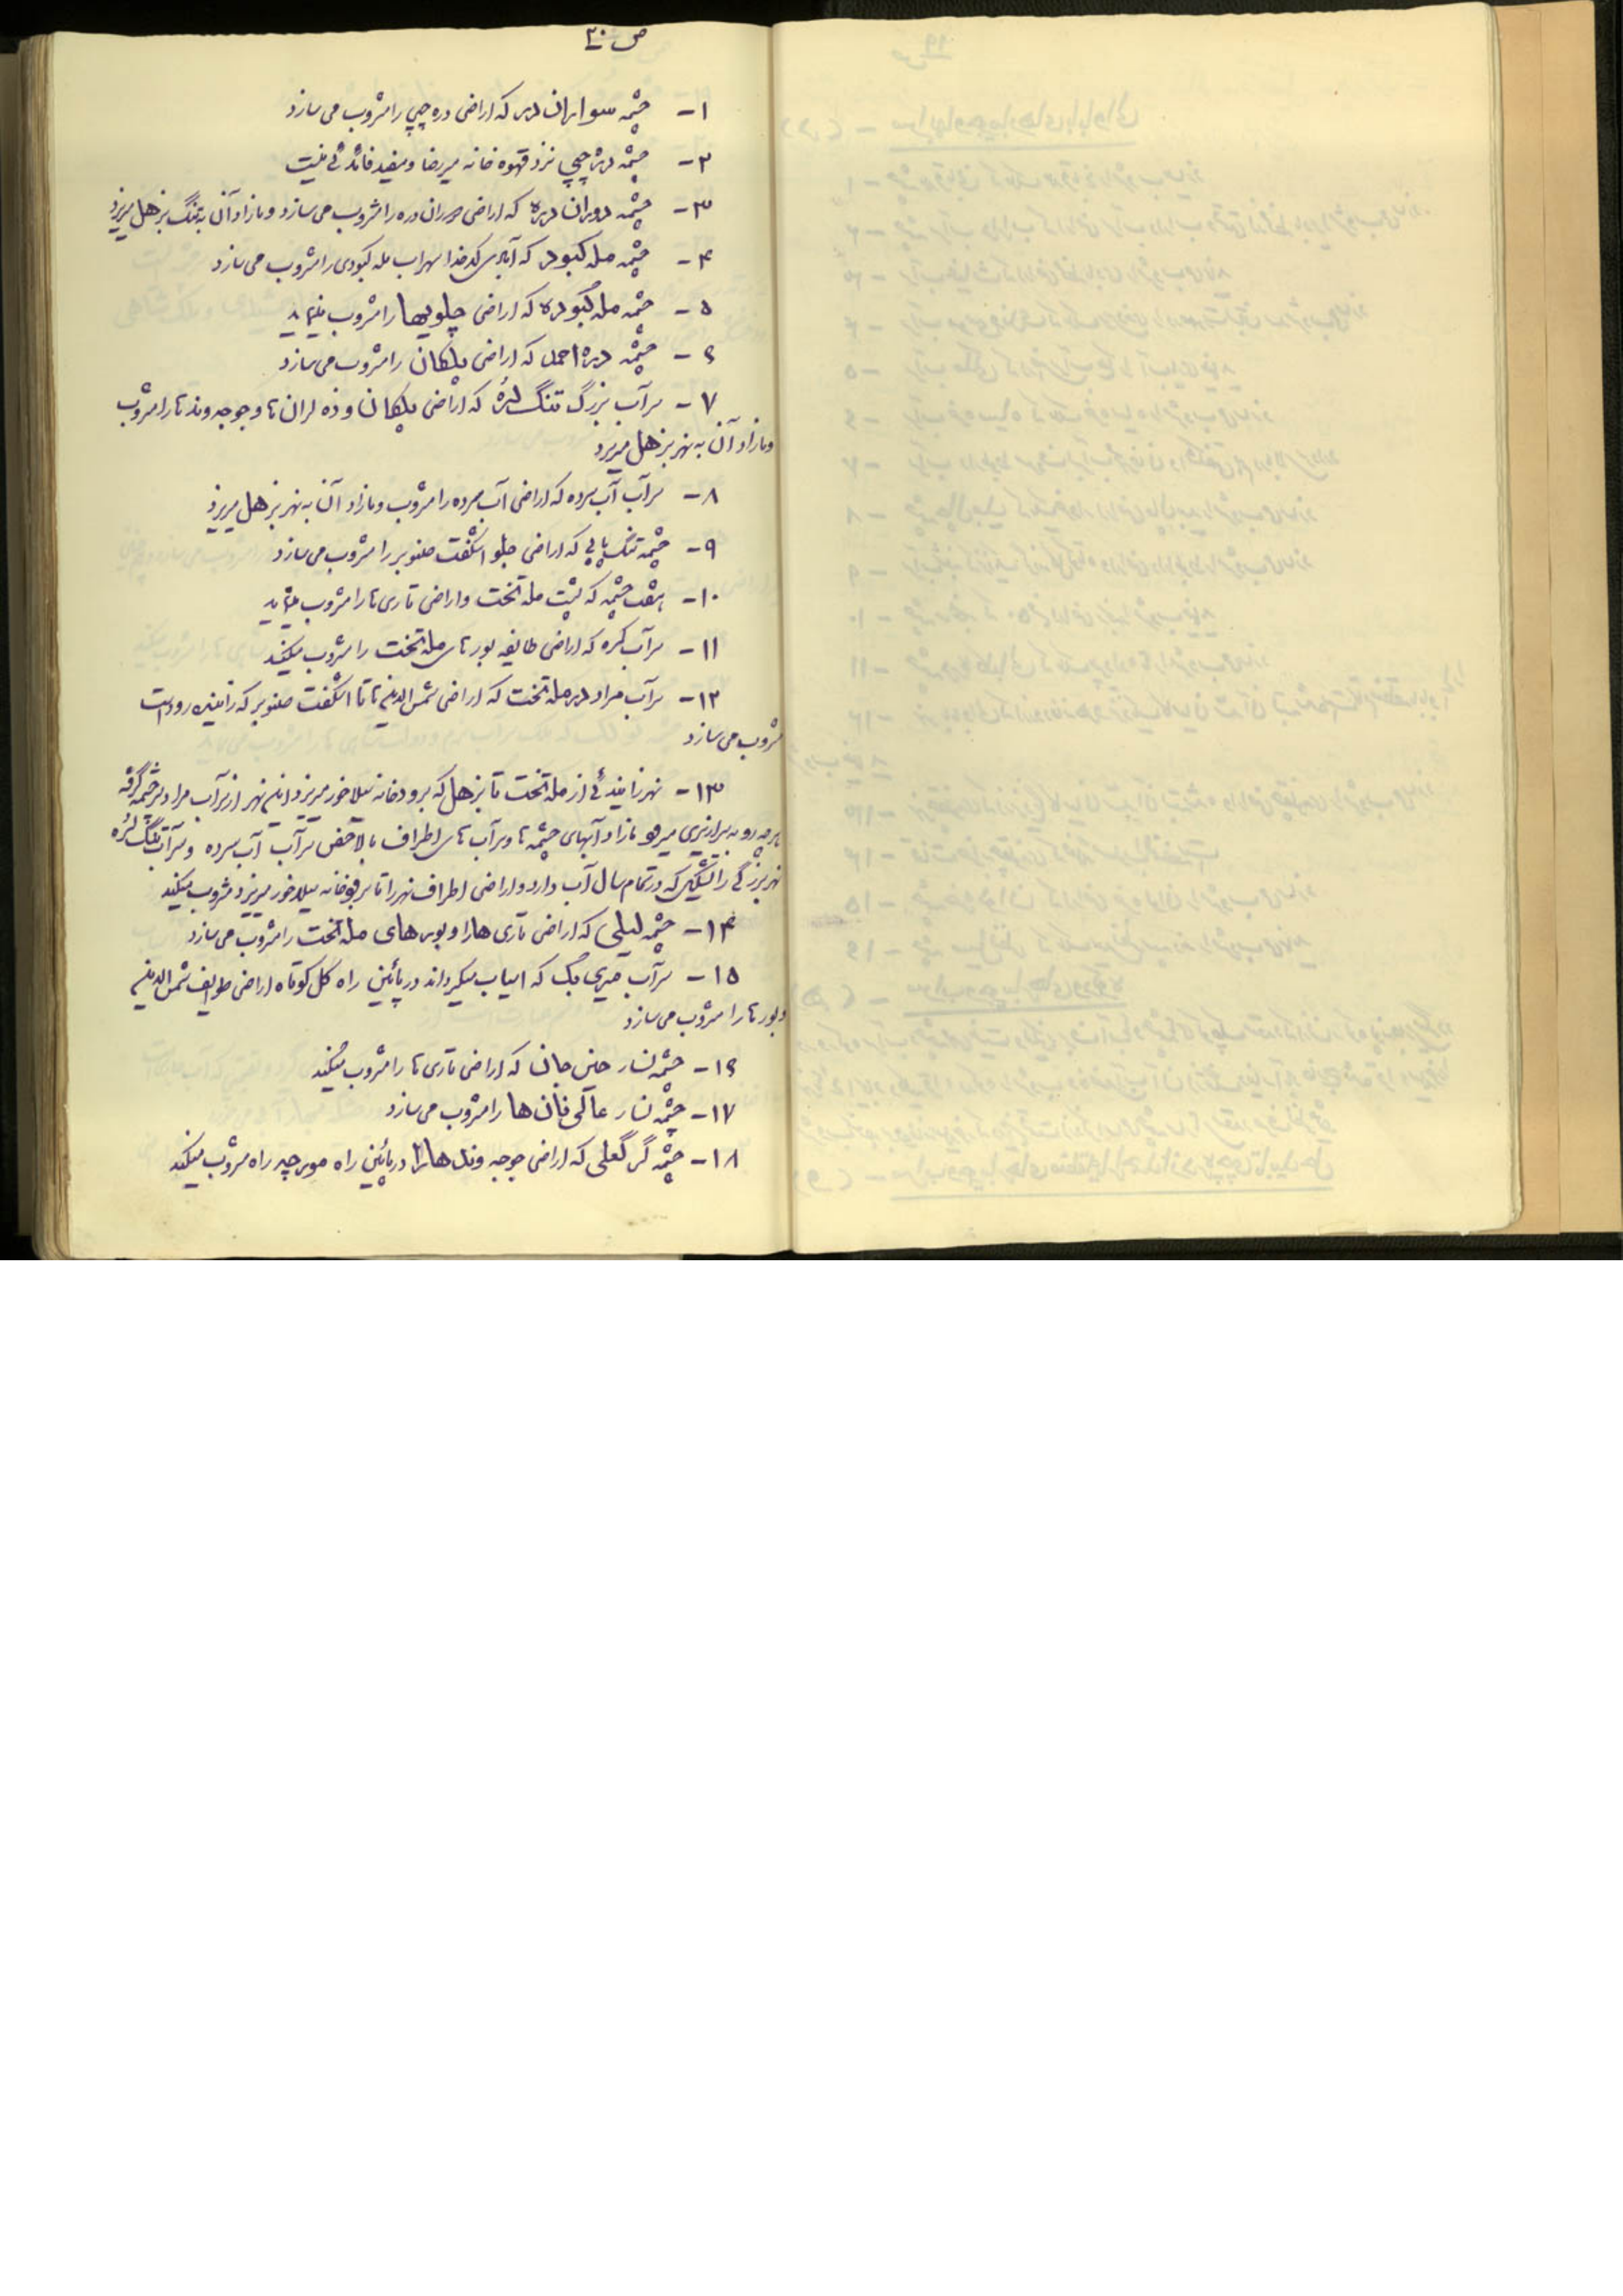 ص ۳۰
۱- چشمه سواران دره که اراضی دره چپی را مشروب می سازد
۲- چشمه دره چپی نزد قهوه خانه میرضا و مفید فائده ئی نیست
۳- چشمه دوران دره که اراضی دوران دره را مشروب می سازد و مازاد آن به تنگ بزهل میریزد
۴- چشمه مله کبود که کدخدا سهراب مله کبودی را مشروب می سازد
۵- چشمه مله کبوده که اراضی چلویها را مشروب مینماید
۶- چشمه دره احمد که اراضی پلکان را مشروب می سازد
۷- سرآب بزرگ تنگ لره که اراضی پلکان و ده لران ها و جوجه وندها را مشروب
ومازاد آن به نهر بزهل میریزد
۸- سرآب آب سرده که اراضی آب سرده را مشروب و مازاد آن به نهر بزهل میریزد
۹- چشمه تنگ پالی که اراضی جلو اشگفت صنوبر را مشروب می سازد
۱۰- هفت چشمه که پشت مله تخت و اراضی تاری ها را مشروب مینماید
۱۱- سرآب کره که اراضی طایفه بورهای مله تخت را مشروب میکند
۱۲- سرآب مراد در مله تخت که اراضی شمس الدینی ها تا اشگفت صنوبر که زانیده رود است
مشروب می سازد
۱۳- نهر زانیدئی از مله تخت تا بزهل که برودخانه سیلاخور میریزد این نهر از سرآب مراد سرچشمه گرفته
هرچه رو به سرازیری میرود مازاد آبهای چشمه ها و سرآب های اطراف بالاخص سرآب آب سرده و سرآب تنگ لره
نهر بزرگی را تشکیل که در تمام سال آب دارد و اراضی اطراف نهر را تا برودخانه سیلاخور میریزد مشروب میکند
۱۴- چشمه لیلی که اراضی تاری ها را و بورهای مله تخت را مشروب می سازد
۱۵- سرآب میری بگ که اسیاب میگرداند در پائین راه کل کوتاه اراضی طوایف شمس الدینی
و بورها را مشروب می سازد
۱۶- چشمه نسار حسن جان که اراضی تاری ها را مشروب میکند
۱۷- چشمه نسار عالی خان ها را مشروب می سازد
۱۸- چشمه گر گعلی که اراضی جوجه وندها را در پائین راه مورچه راه مشروب میکند